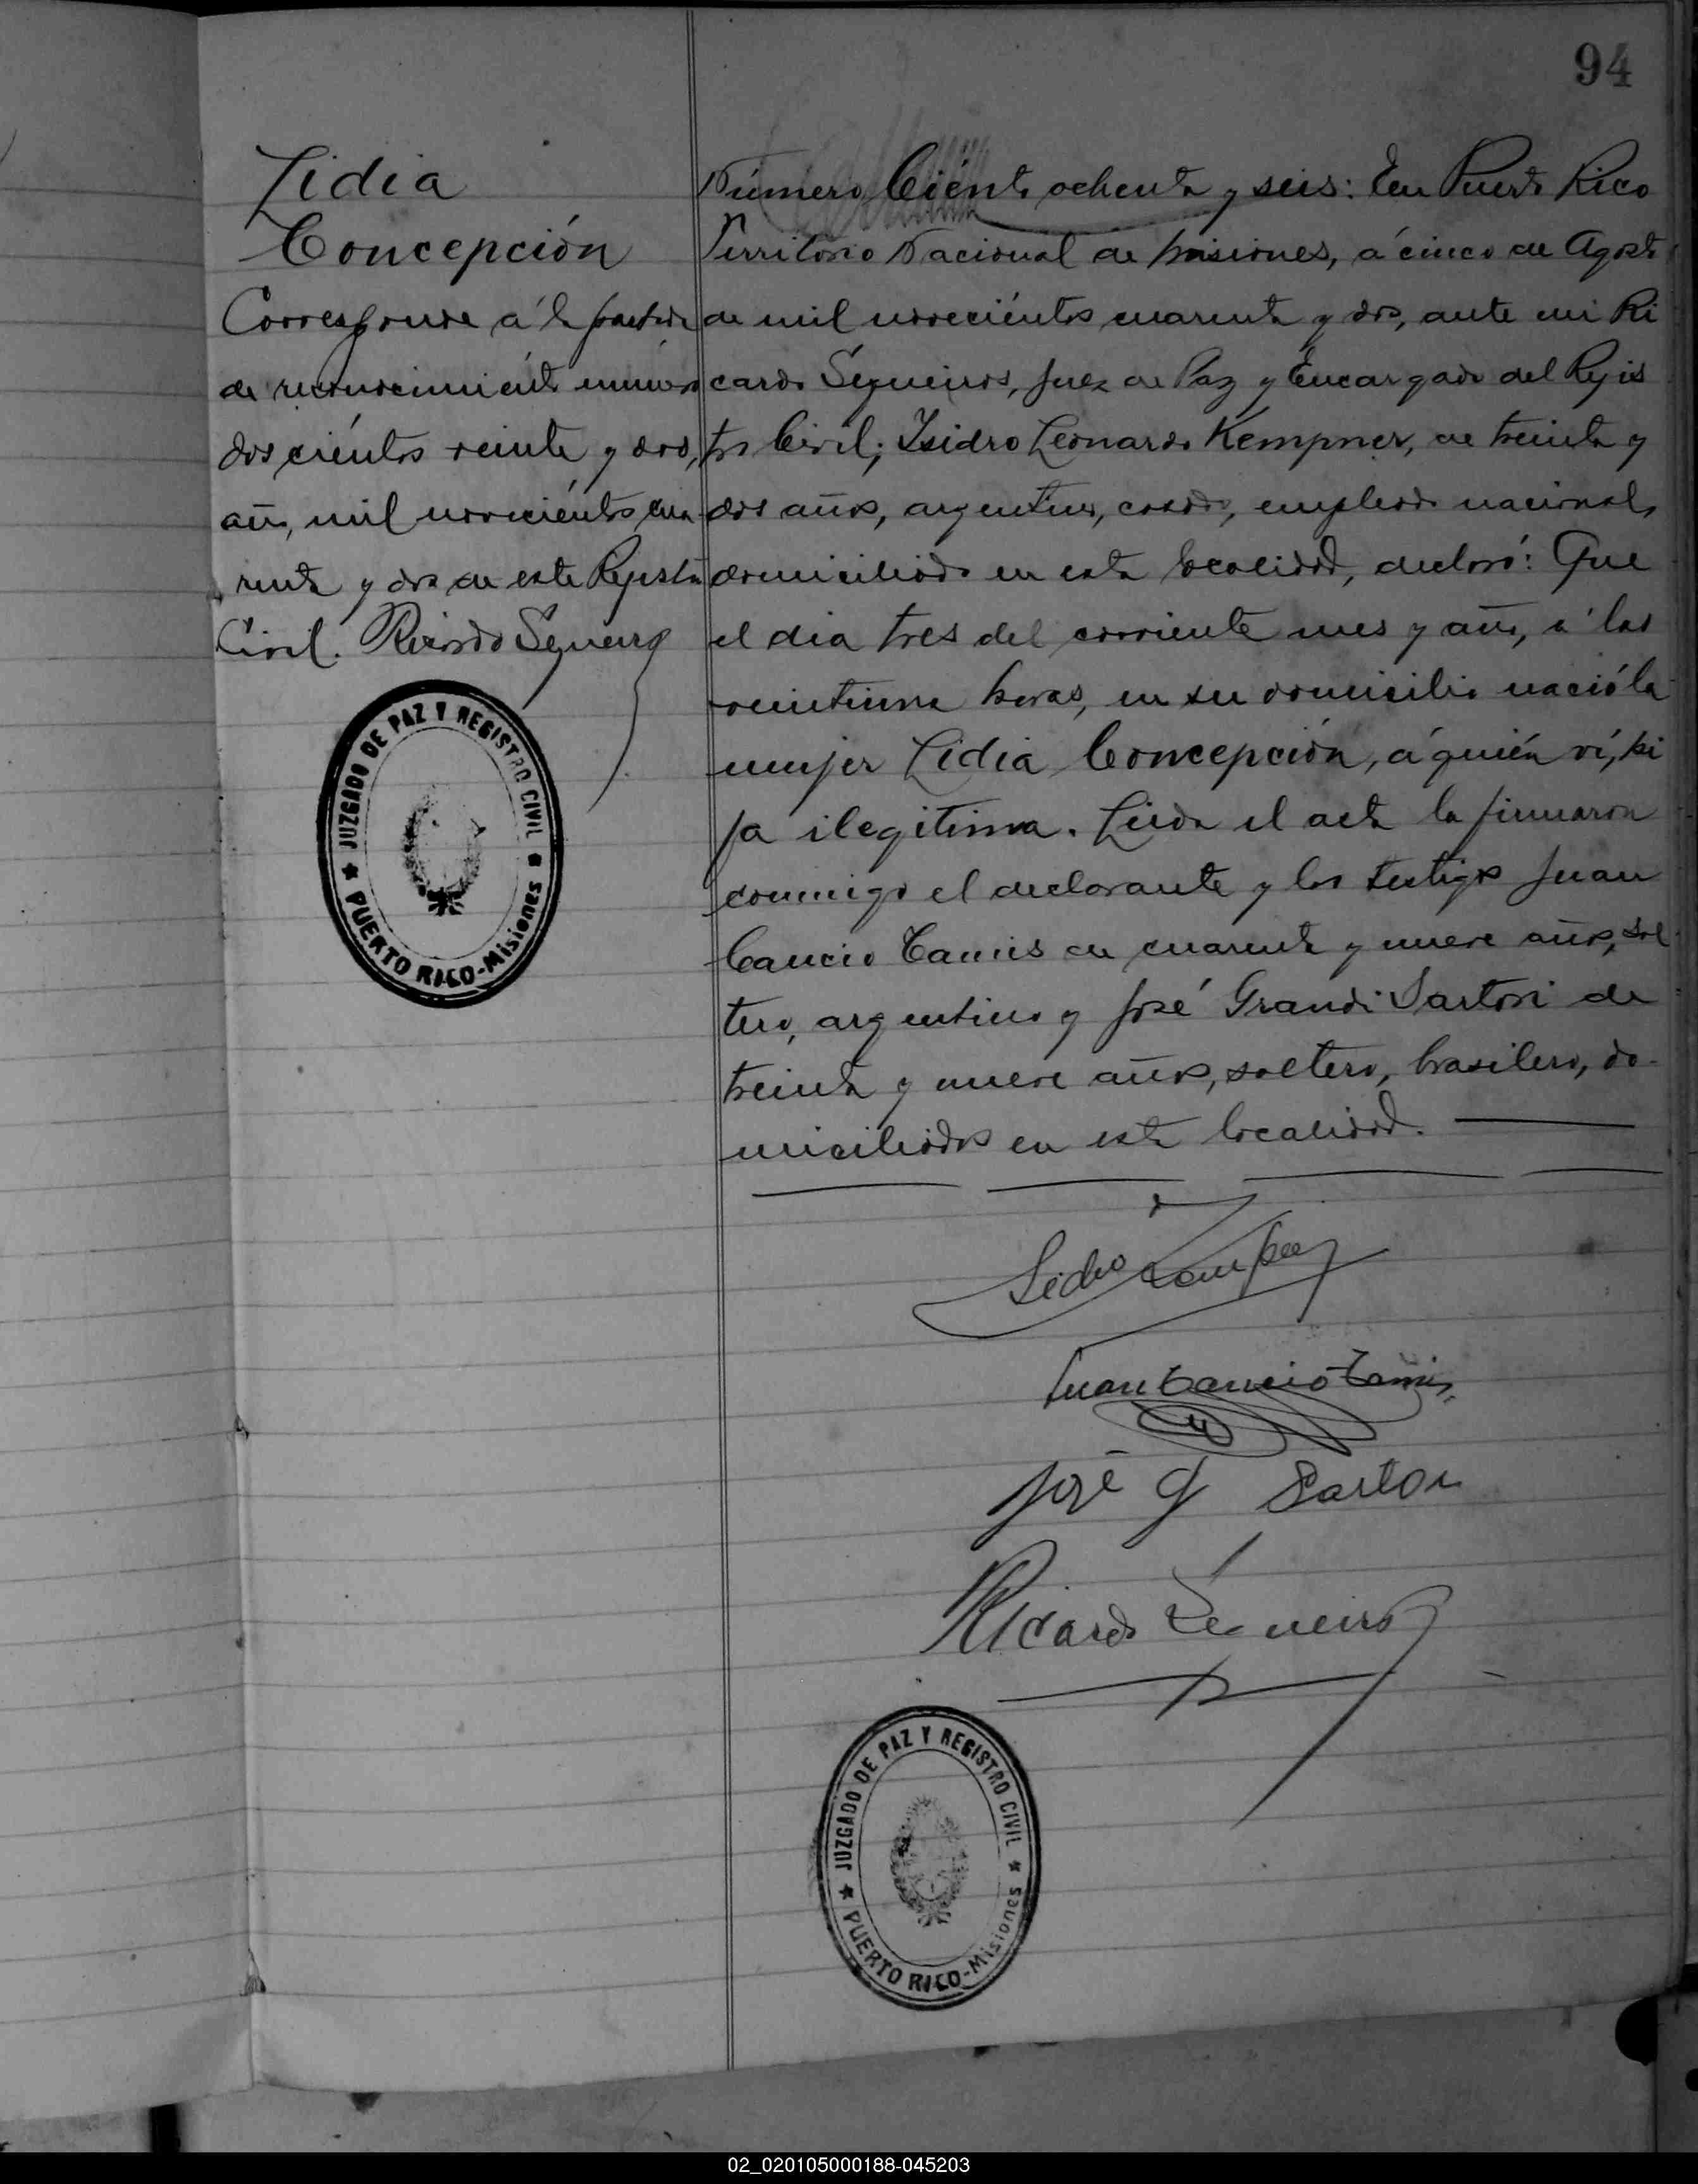 94
Lidia
Concepción
Corresponde á la partida
de reconocimiénto número
dos ciéntos veinte y dos,
año, mil noveciéntos cua
renta y dos de este Rejistro
Civil. Ricardo Séqueiros
JUZGADO DE PAZ Y REGISTRO CIVIL
PUERTO RICO-Misiones
Número Ciénto ochenta y seis: En Puerto Rico
Territorio Nacional de Misiones, á cinco de Agosto
de mil noveciéntos cuarenta y dos, ante mi Ri
cardo Séqueiros, Juez de Paz y Éncargado del Rejis
tro Civil; Isidro Leonardo Kempner, de treinta y
dos años, argentino, casado, empleado nacional,
domiciliado en esta localidad, declaró: Que
el dia tres del corriente mes y año, á las
veintiuna horas, en su domicilio nació la
mujer Lidia Concepción, á quién ví, hi
ja ilegitima. Leida el acta la firmaron
conmigo el declarante y los testigos Juan
Cancio Tamis de cuarenta y nueve años, sol
tero, argentino y José Grandi Sartori de
treinta y nueve años, soltero, brasilero, do-
miciliados en esta localidad.
Juan Cancio Tamis
José G Sartori
Ricardo Séqueiros
JUZGADO DE PAZ Y REGISTRO CIVIL
PUERTO RICO-Misiones
02_020105000188-045203